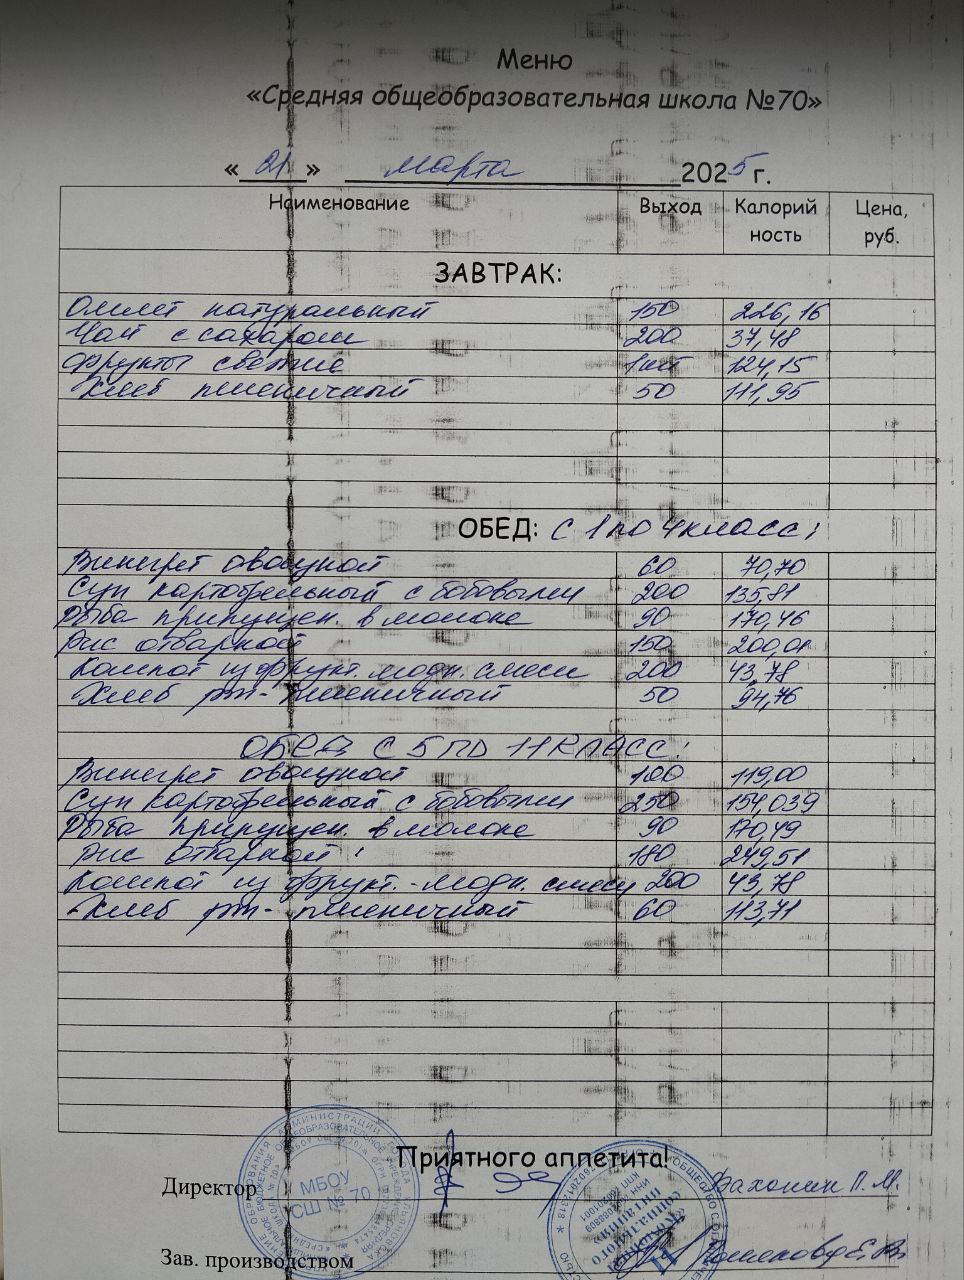 Меню
«Средняя общеобразовательная школа №70»
« 21 » марта 2025 г.
Наименование Выход Калорий ность Цена, руб.
ЗАВТРАК:
Омлет натуральный 150 226,16
Чай с сахаром 200 37,48
Фрукты свежие 1шт 124,15
Хлеб пшеничный 50 111,95
ОБЕД: С 1 ПО 4 класс:
Винегрет овощной 60 70,70
Суп картофельный с бобовыми 200 135,81
Рыба припущен. в молоке 90 170,46
Рис отварной 150 200,01
Компот из фрукт. ягодн. смеси 200 43,78
Хлеб рж- пшеничный 50 94,76
ОБЕД С 5 ПО 11 КЛАСС:
Винегрет овощной 100 119,00
Суп картофельный с бобовыми 250 154,039
Рыба припущен. в молоке 90 170,49
Рис отварной 180 249,51
Компот из фрукт.-ягодн. смеси 200 43,78
Хлеб рж- пшеничный 60 113,71
Приятного аппетита!
Директор П.М.
МБОУ
СШ № 70
Зав. производством Е.В.